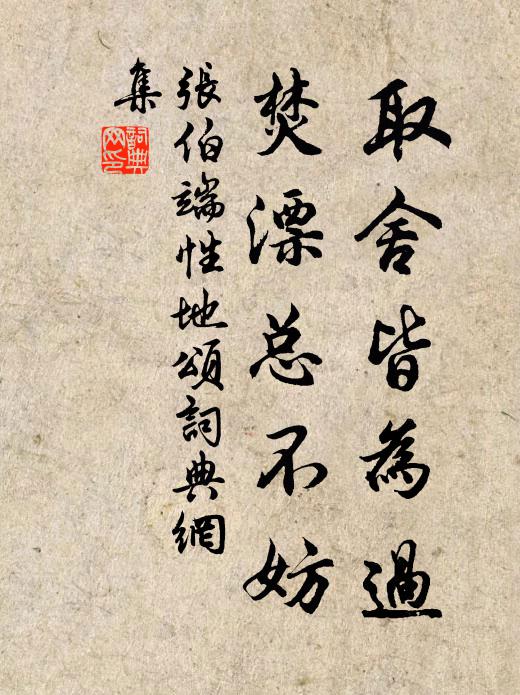 取舍皆為過
焚漂总不妨
張伯端性地頌詞典網
集
詞典網印